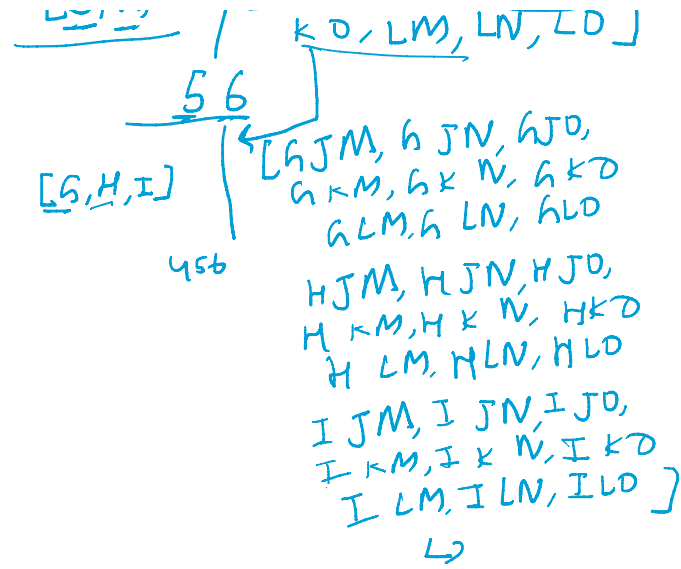 KO, LM, LN, LO]
56
[GJM, GJN, GJO,
[G,H,I]
GKM, GKN, GKO
GLM, GLN, GLO
456
HJM, HJN, HJO,
HKM, HKN, HKO
HLM, HLN, HLO
IJM, IJN, IJO,
IKM, IKN, IKO
ILM, ILN, ILO]